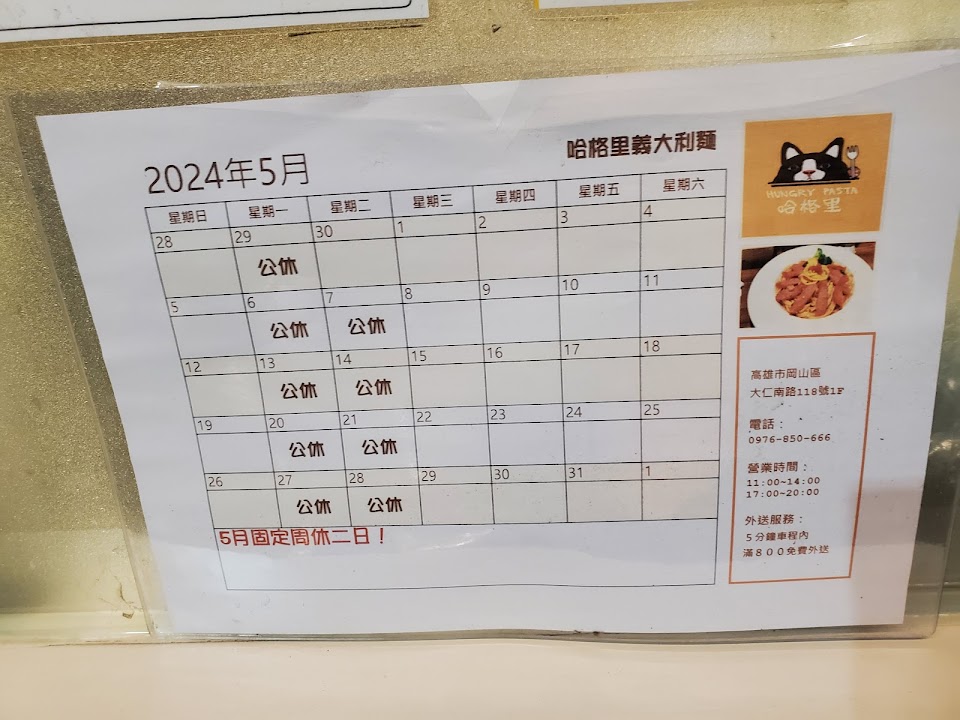 2024年5月
哈格里義大利麵
星期日 星期一 星期二 星期三 星期四 星期五 星期六
28 29 30 1 2 3 4
公休
5 6 7 8 9 10 11
公休 公休
12 13 14 15 16 17 18
公休 公休
19 20 21 22 23 24 25
公休 公休
26 27 28 29 30 31 1
公休 公休
5月固定周休二日！
HUNGRY PASTA
哈格里
高雄市岡山區
大仁南路118號1F
電話：
0976-850-666
營業時間：
11:00~14:00
17:00~20:00
外送服務：
5分鐘車程內
滿800免費外送